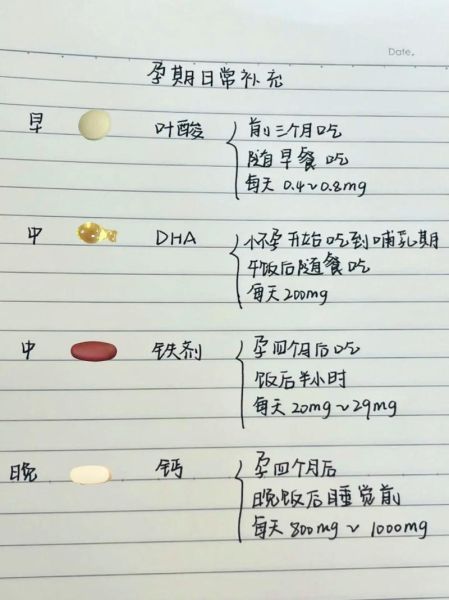 Date.
孕期日常补充
早 叶酸 前三个月吃
随早餐吃
每天 0.4~0.8mg
中 DHA 怀孕开始吃到哺乳期
午饭后随餐吃
每天200mg
中 铁剂 孕四个月后吃
饭后半小时
每天20mg~29mg
晚 钙 孕四个月后
晚饭后睡觉前
每天800mg~1000mg